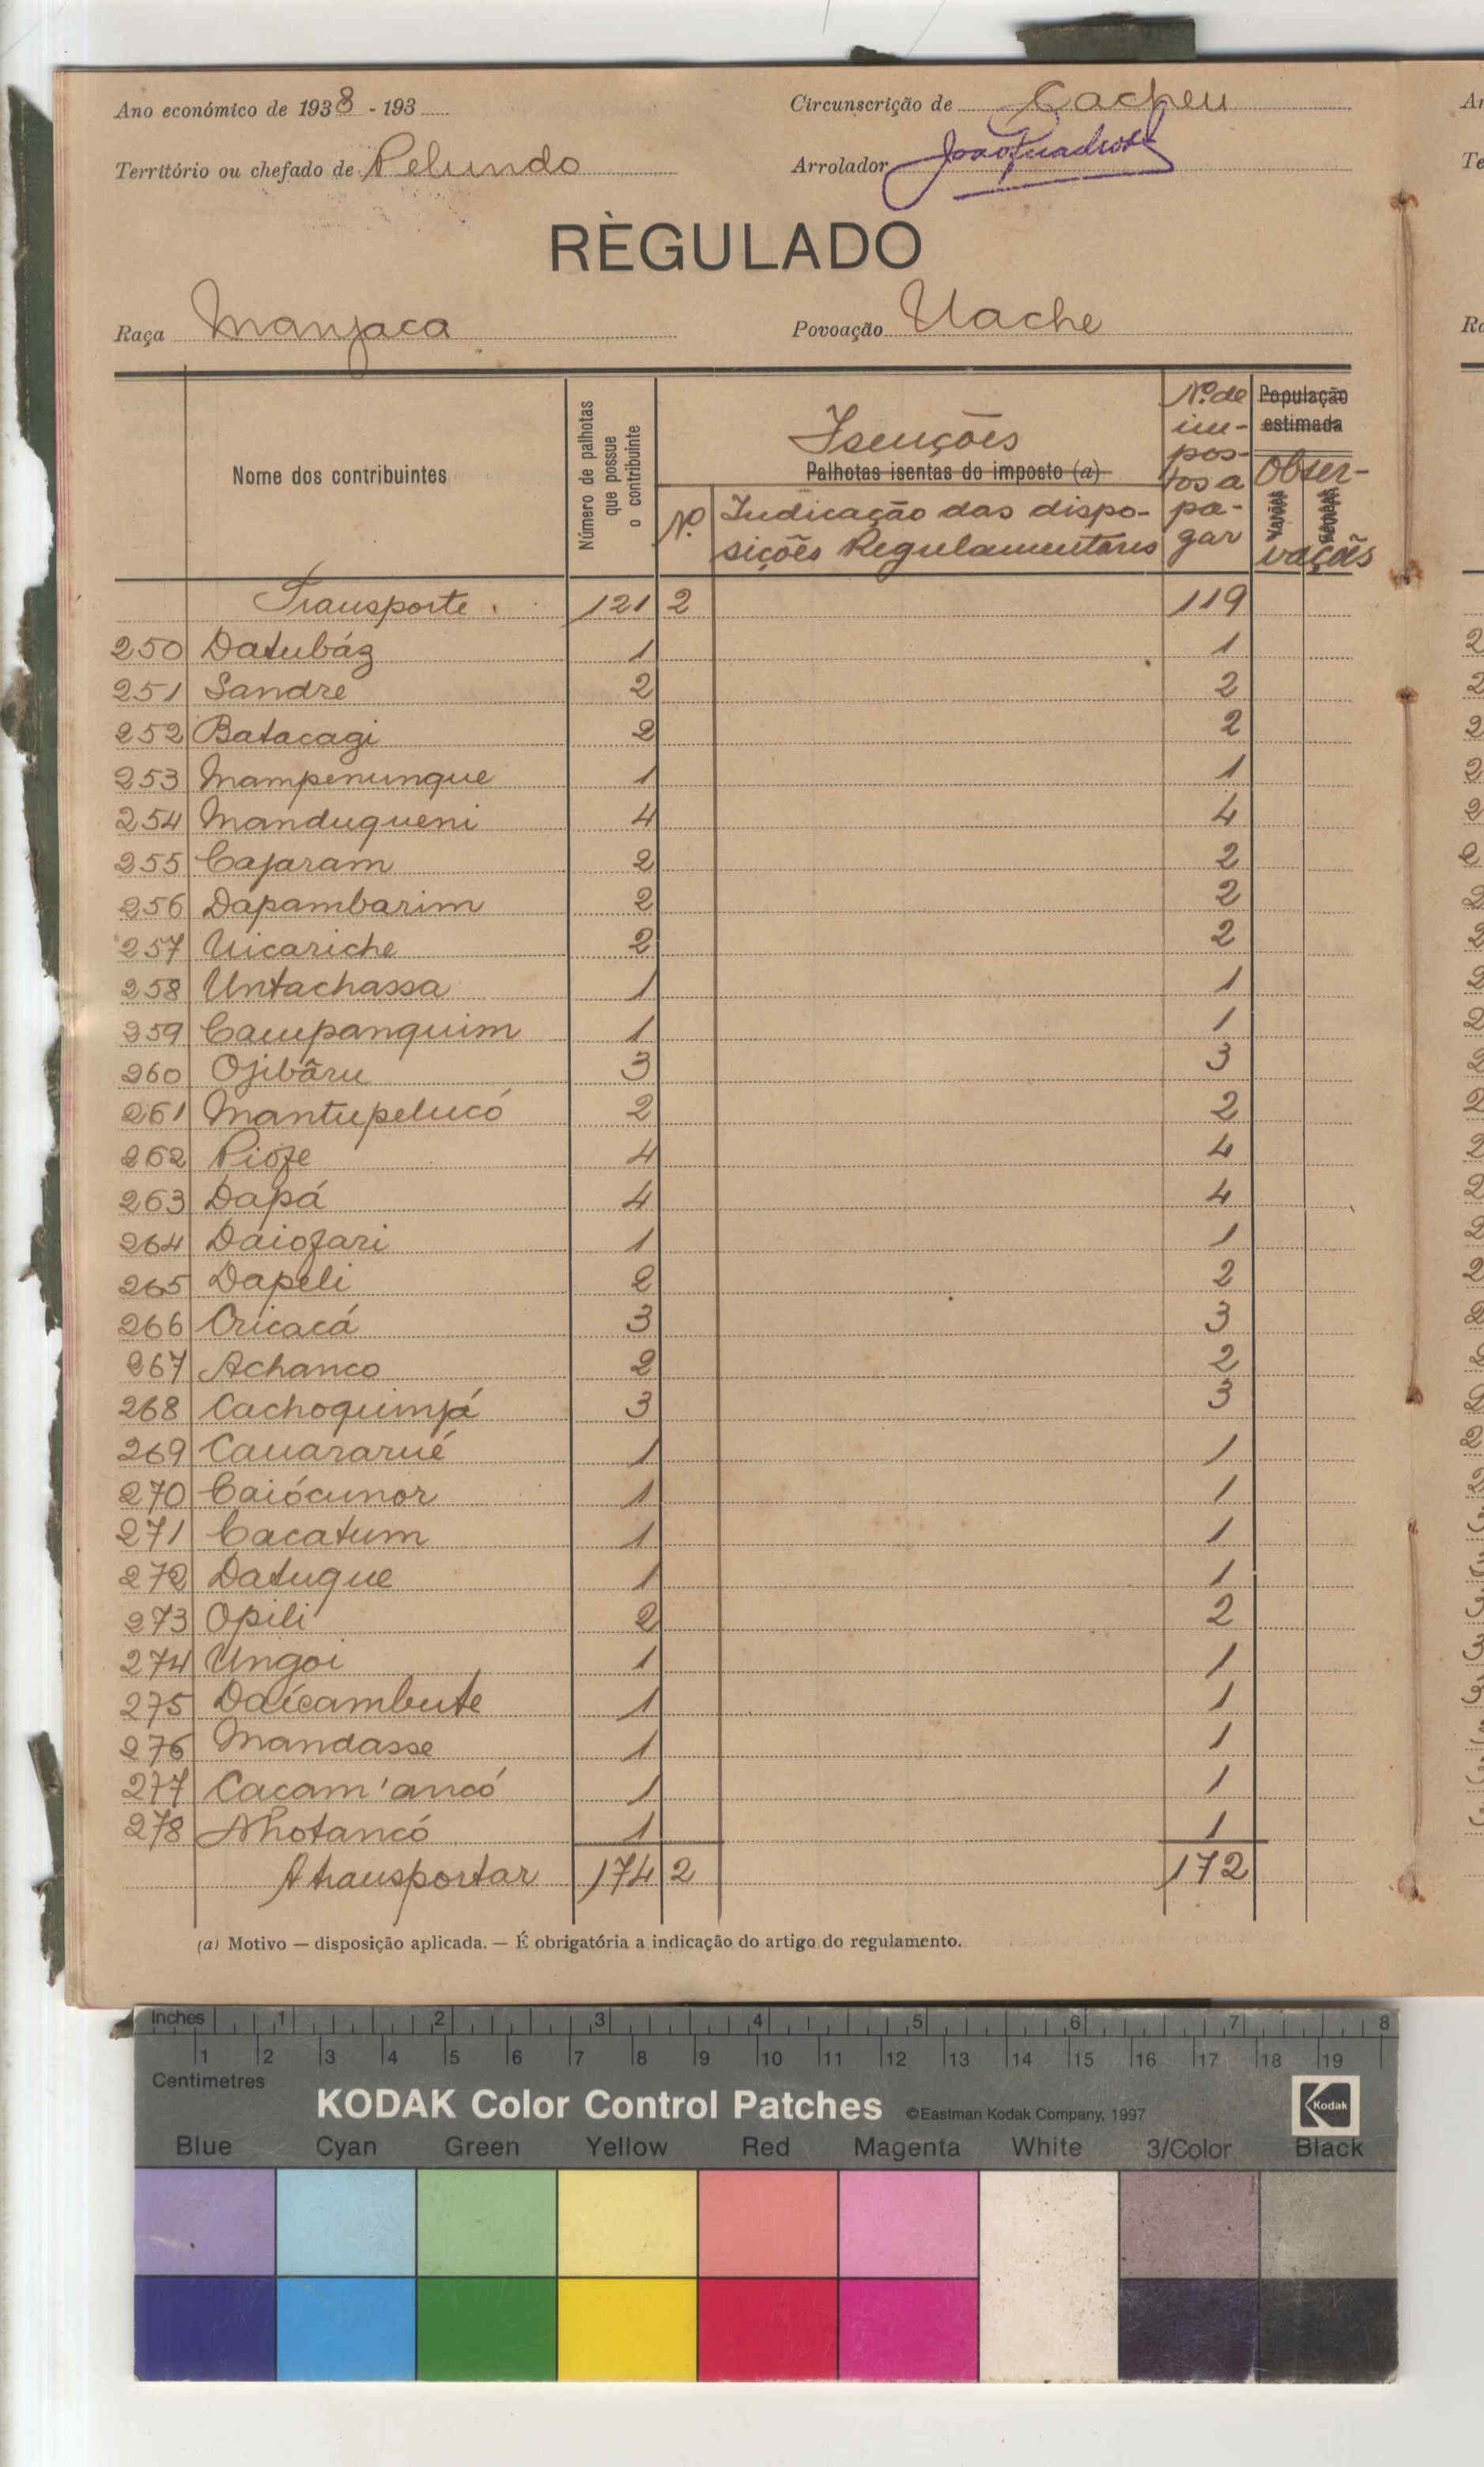 Ano económico de 1938 - 193
Circunscrição de Cacheu
Território ou chefado de Pelundo
Arrolador
RÈGULADO
Raça Manjaca
Povoação Uache
Nome dos contribuintes
Número de palhotas que possue o contribuinte
Isenções
Palhotas isentas do imposto (a)
Nº
Indicação das dispo-
sições Regulamentares
Nº de im-pos-tos a pa-gar
População estimada
Obser-vações
Varões
Fêmeas
Transporte. 121 2 119
250 Datubáz 1 1
251 Sandre 2 2
252 Batacagi 2 2
253 Mampenunque 1 1
254 Manduqueni 4 4
255 Cajaram 2 2
256 Dapambarim 2 2
257 Uicariche 2 2
258 Untachassa 1 1
259 Campanquim 1 1
260 Ojibãru 3 3
261 Mantupelucó 2 2
262 Piofe 4 4
263 Dapá 4 4
264 Daiofari 1 1
265 Dapeli 2 2
266 Oricacá 3 3
267 Achanco 2 2
268 Cachoquimjá 3 3
269 Cauararué 1 1
270 Caiócunor 1 1
271 Cacatum 1 1
272 Datuque 1 1
273 Opili 2 2
274 Ungoi 1 1
275 Daícambute 1 1
276 Mandasse 1 1
277 Cacam'ancó 1 1
278 Nhotancó 1 1
A transportar 174 2 172
(a) Motivo — disposição aplicada. — É obrigatória a indicação do artigo do regulamento.
Inches 1 2 3 4 5 6 7 8
1 2 3 4 5 6 7 8 9 10 11 12 13 14 15 16 17 18 19
Centimetres
KODAK Color Control Patches ©Eastman Kodak Company, 1997 Kodak
Blue Cyan Green Yellow Red Magenta White 3/Color Black